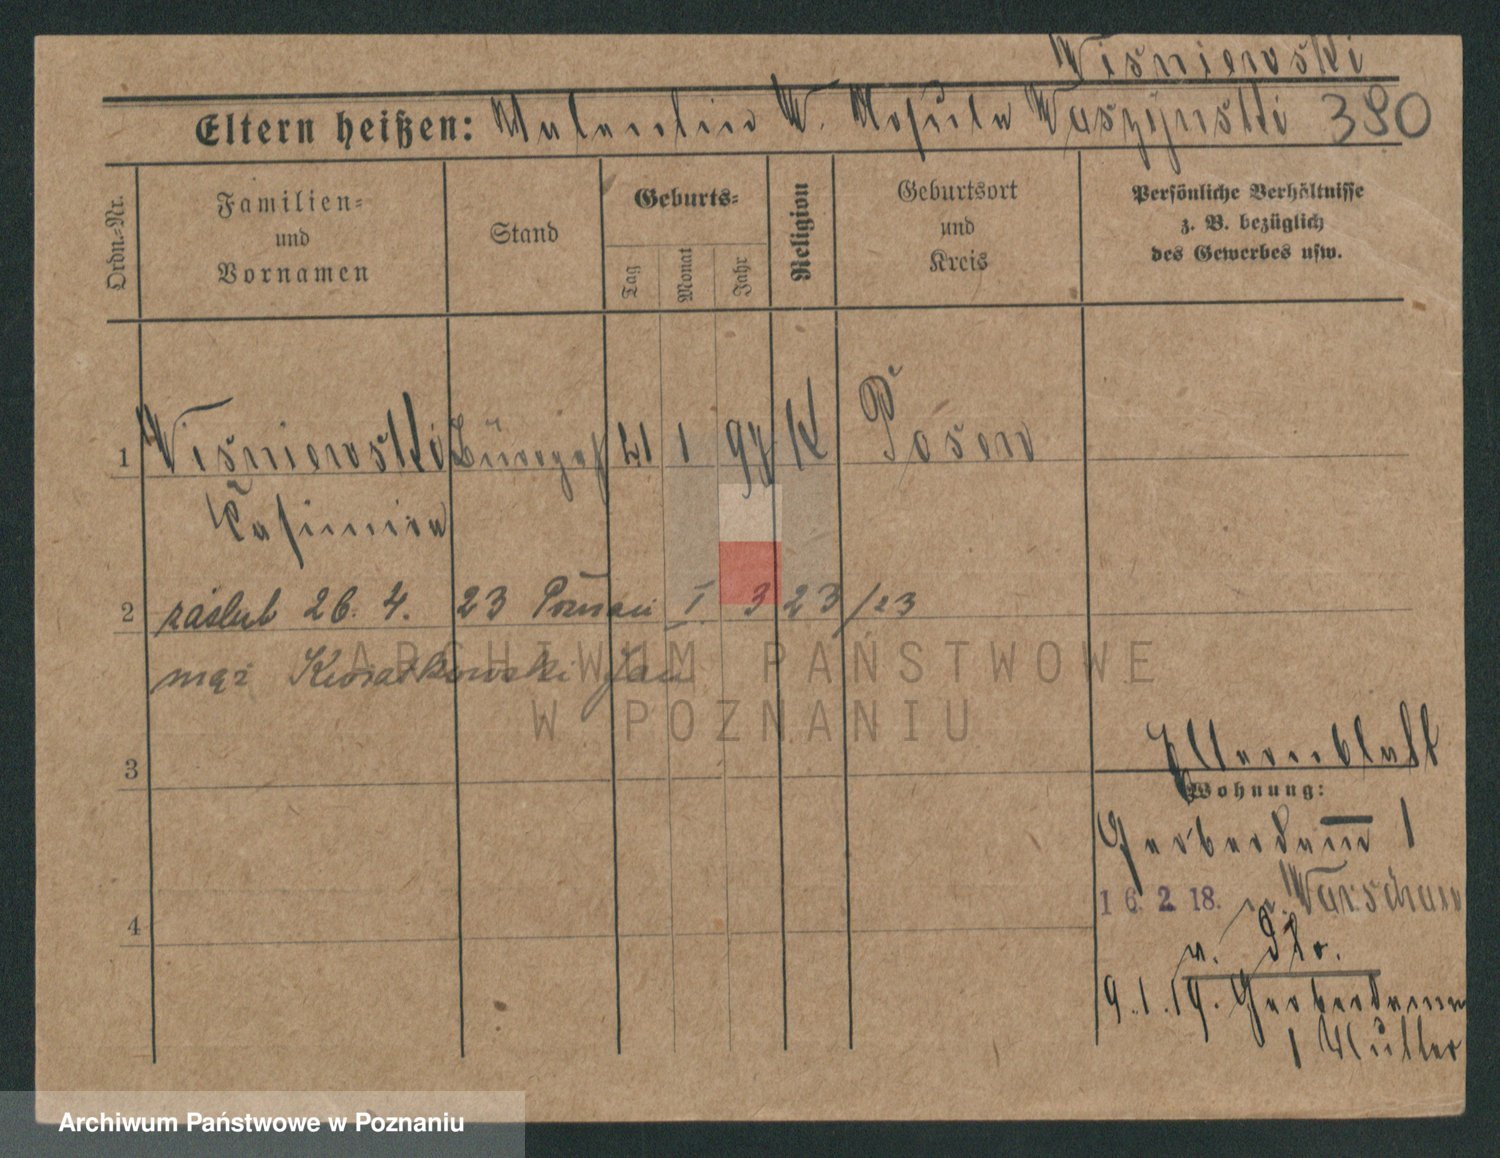 Wiśniewski
Eltern heißen: Valentin W. Rosula Waszynski 390
Ordn.-Nr.
Familien- und Vornamen
Stand
Geburts-
Tag
Monat
Jahr
Religion
Geburtsort und Kreis
Persönliche Verhältnisse z. B. bezüglich des Gewerbes usw.
1 Wiśniewski 21 1 97 K Posen
Casimira
2 zaślub 26. 4. 23 Poznań I. 323/23
mąż Kwiatkowski Jan
3
Elternblatt
Wohnung:
Gerberdamm 1
16. 2. 18. n. Warschau
4
v. Str.
9.1.19. Gerberdamm
1 Mutter
ARCHIWUM PAŃSTWOWE
W POZNANIU
Archiwum Państwowe w Poznaniu